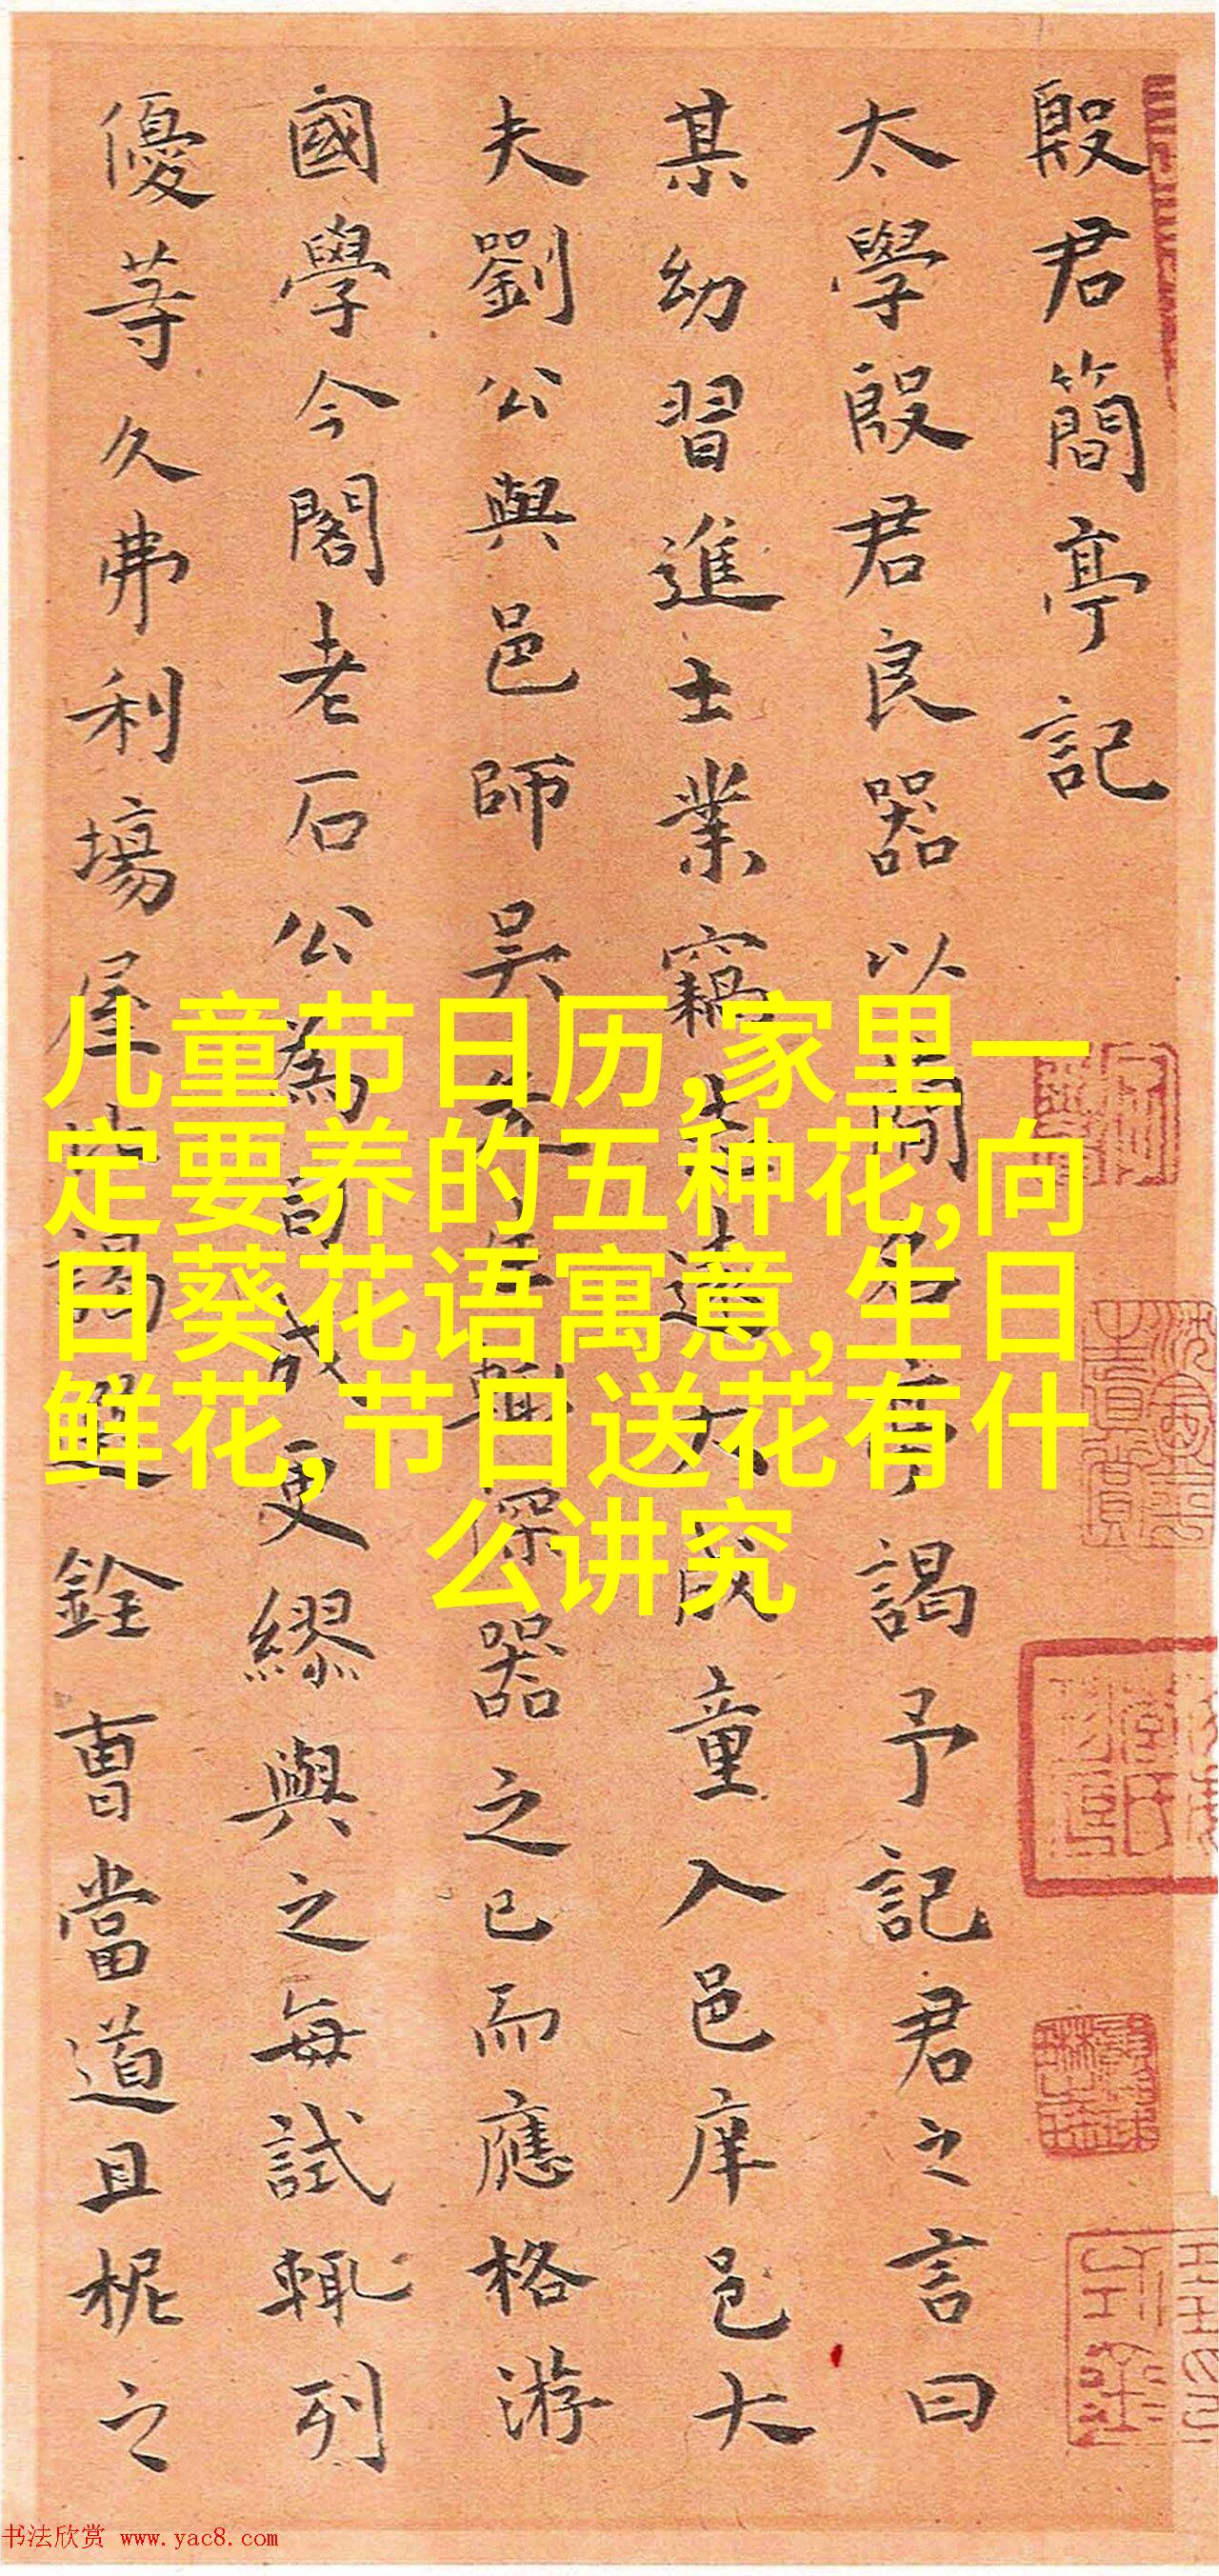 殷君簡亭記
太學殷君良器以簡名亭謁予記君之言曰
某幼習進士業竊志遠大成童入邑庠邑大
夫劉公與邑師吳年輒深器之已而應格游
國學今閣老石公為司成更繆與之每試輒列
優等久弗利場屋比謁選銓曹當道且柅之
儿童节日历,家里一
定要养的五种花,向
日葵花语寓意,生日
鲜花,节日送花有什
么讲究
书法欣赏 www.yac8.com